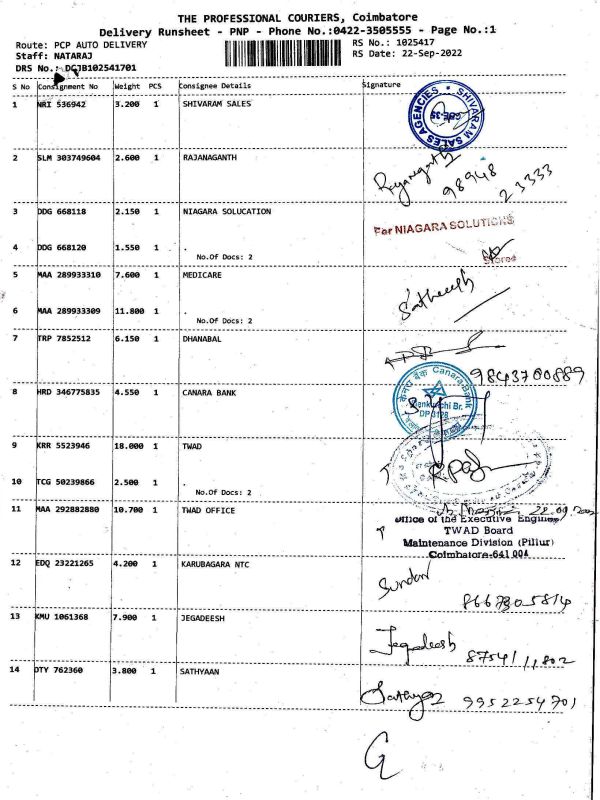 THE PROFESSIONAL COURIERS, Coimbatore
Delivery Runsheet - PNP - Phone No.:0422-3505555 - Page No.:1
Route: PCP AUTO DELIVERY
RS No.: 1025417
Staff: NATARAJ
RS Date: 22-Sep-2022
DRS No.: DCJB102541701
S No Consignment No Weight PCS Consignee Details Signature
1 NRI 536942 3.200 1 SHIVARAM SALES
SHIVARAM SALES AGENCIES
CBE-35
2 SLM 303749604 2.600 1 RAJANAGANTH
Rajanaganth
98948
23333
3 DDG 668118 2.150 1 NIAGARA SOLUCATION
For NIAGARA SOLUTIONS
4 DDG 668120 1.550 1 .
No.Of Docs: 2
Stores
5 MAA 289933310 7.600 1 MEDICARE
Satheesh
6 MAA 289933309 11.800 1 .
No.Of Docs: 2
7 TRP 7852512 6.150 1 DHANABAL
9843700889
8 HRD 346775835 4.550 1 CANARA BANK
केनरा बैंक Canara Bank
9 KRR 5523946 18.000 1 TWAD
10 TCG 50239866 2.500 1 .
No.Of Docs: 2
11 MAA 292882880 10.700 1 TWAD OFFICE
Office of the Executive Engineer
TWAD Board
Maintenance Division (Pillur)
Coimbatore-641 004
12 EDQ 23221265 4.200 1 KARUBAGARA NTC
Sundar
8667305814
13 KMU 1061368 7.900 1 JEGADEESH
Jegadeesh
8754111802
14 DTY 762360 3.800 1 SATHYAAN
Sathyan 9952254701